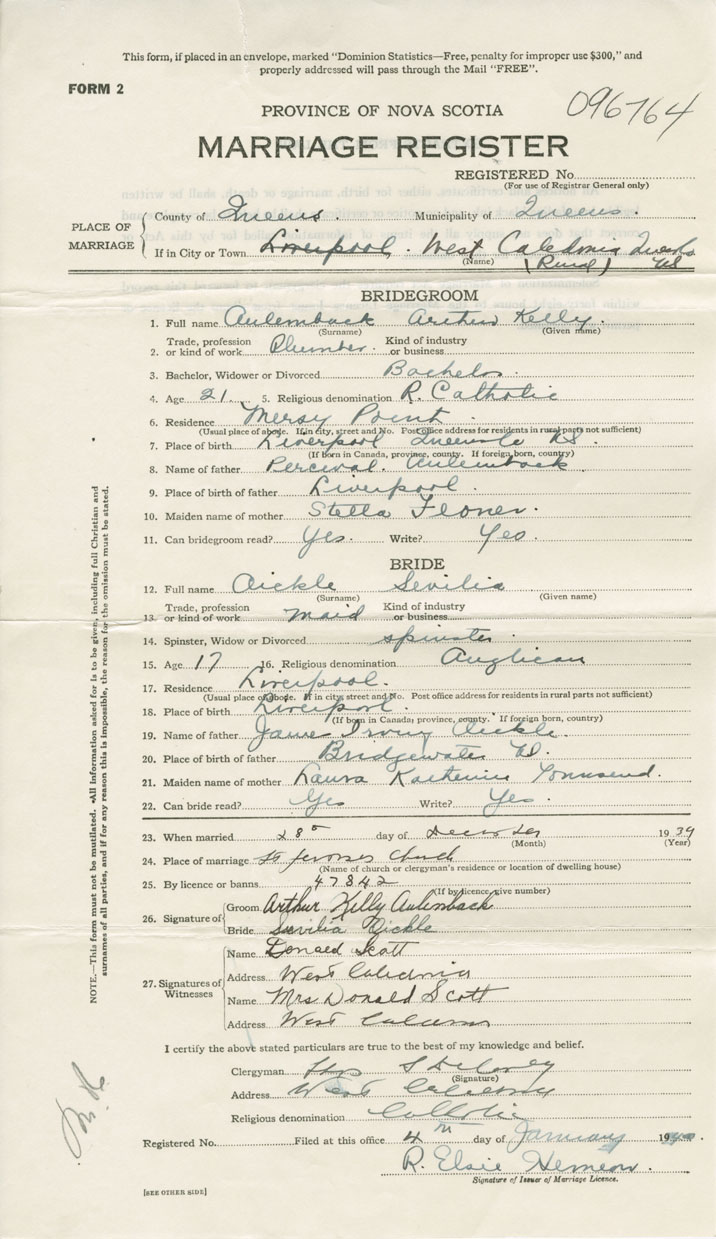 This form, if placed in an envelope, marked "Dominion Statistics—Free, penalty for improper use $300," and
properly addressed will pass through the Mail "FREE".
FORM 2
096764
PROVINCE OF NOVA SCOTIA
MARRIAGE REGISTER
REGISTERED No.
(For use of Registrar General only)
PLACE OF MARRIAGE
County of Queens. Municipality of Queens.
If in City or Town Liverpool. West Caledonia Queens
(Name) (Rural) NS
BRIDEGROOM
1. Full name Aulenback Arthur Kelly.
(Surname) (Given name)
2. Trade, profession or kind of work Plumber. Kind of industry or business
3. Bachelor, Widower or Divorced Bachelor
4. Age 21. 5. Religious denomination R. Catholic
6. Residence Mersy Point.
(Usual place of abode. If in city, street and No. Post office address for residents in rural parts not sufficient)
7. Place of birth Liverpool NS.
(If born in Canada, province, county. If foreign born, country)
8. Name of father Perceval. Aulenback
9. Place of birth of father Liverpool.
10. Maiden name of mother Stella
11. Can bridegroom read? Yes. Write? Yes.
BRIDE
12. Full name Oickle Sevilia
(Surname) (Given name)
13. Trade, profession or kind of work maid Kind of industry or business
14. Spinster, Widow or Divorced spinster.
15. Age 17 16. Religious denomination Anglican
17. Residence Liverpool.
(Usual place of abode. If in city, street and No. Post office address for residents in rural parts not sufficient)
18. Place of birth Liverpool.
(If born in Canada, province, county. If foreign born, country)
19. Name of father James Irving Oickle.
20. Place of birth of father Bridgewater NS.
21. Maiden name of mother Laura Katherine Townsend.
22. Can bride read? Yes Write? Yes.
23. When married 28 day of December 1939
(Month) (Year)
24. Place of marriage St Jeromes Church
(Name of church or clergyman's residence or location of dwelling house)
25. By licence or banns 47842
(If by licence, give number)
26. Signature of
Groom Arthur Kelly Aulenback
Bride Sevilia Oickle
27. Signatures of Witnesses
Name Donald Scott
Address West Caledonia
Name Mrs. Donald Scott
Address West Caledonia
I certify the above stated particulars are true to the best of my knowledge and belief.
Clergyman
(Signature)
Address West Caledonia
Religious denomination Catholic
Registered No. Filed at this office 4th day of January 1940.
R. Elsie Hemeon.
Signature of Issuer of Marriage Licence.
[SEE OTHER SIDE]
NOTE.—This form must not be mutilated. All information asked for is to be given, including full Christian and
surnames of all parties, and if for any reason this is impossible, the reason for the omission must be stated.